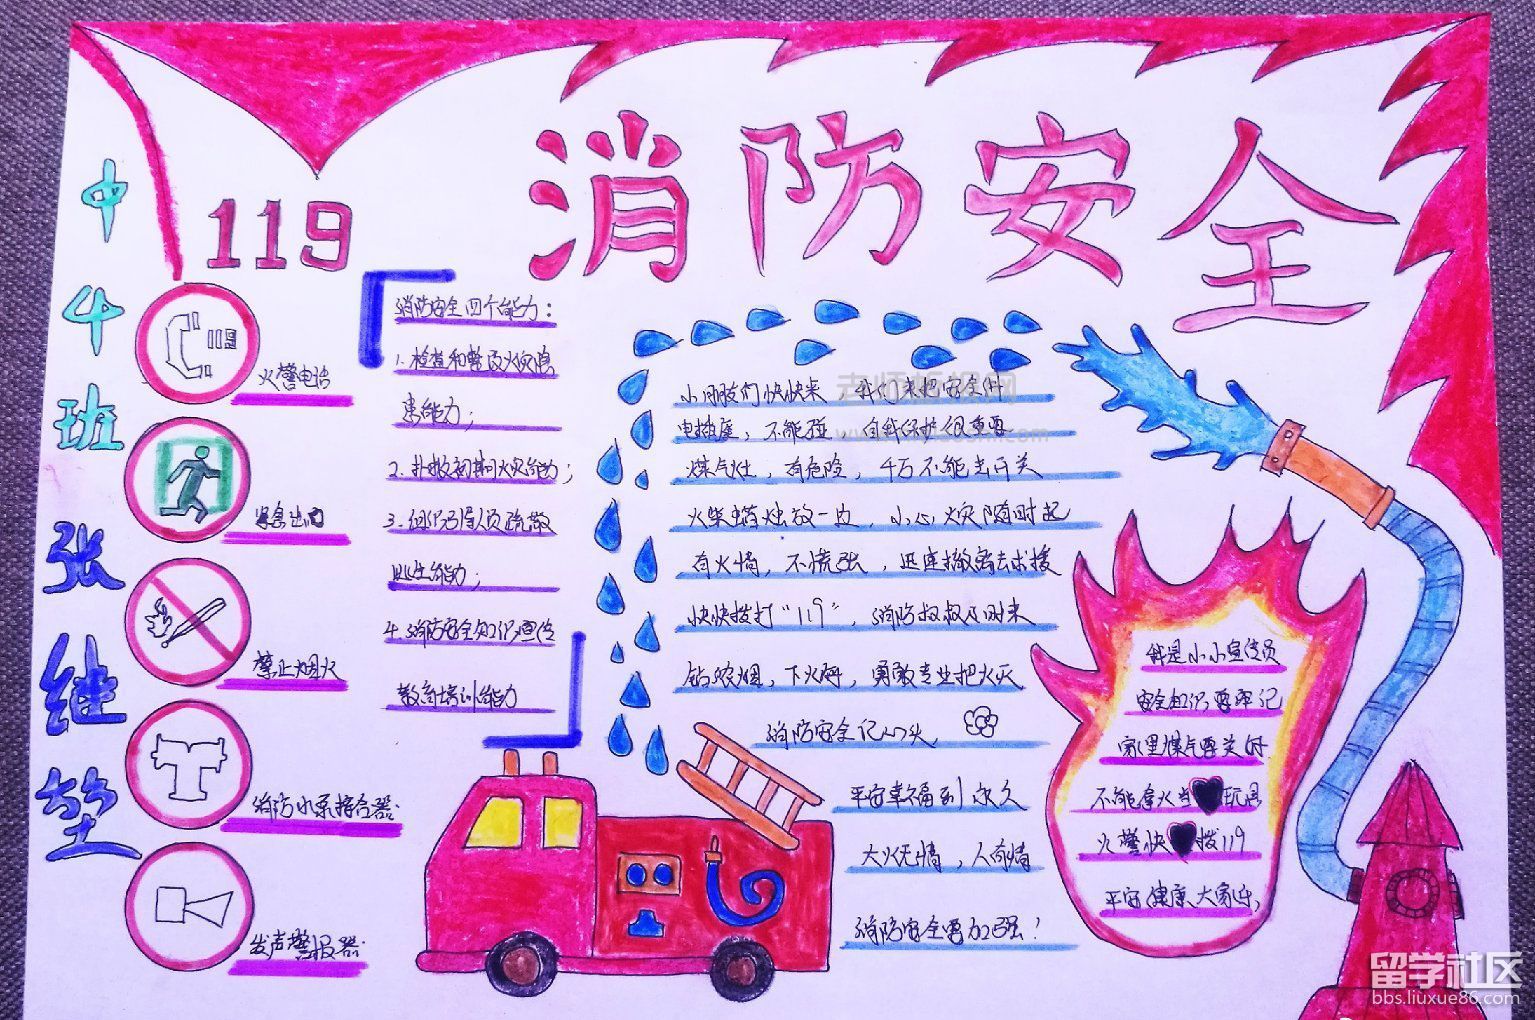 消防安全
119
中4班
张继堃
火警电话
紧急出口
禁止烟火
消防水泵接合器
发声警报器
119
消防安全四个能力：
1.检查和整改火灾隐
患能力；
2.扑救初期火灾能力；
3.组织引导人员疏散
逃生能力；
4.消防安全知识宣传
教育培训能力
小朋友们快快来 我们来把安全
电插座，不能碰 自我保护很重要
煤气灶，有危险，千万不能去开关
火柴蜡烛放一边，小心火灾随时起
有火情，不慌张，迅速撤离去求援
快快拨打"119"，消防叔叔及时来
钻浓烟，下火海，勇敢专业把火灭
消防安全记心头
平安幸福到永久
火无情，人有情
消防安全要加强！
我是小小宣传员
安全知识要牢记
家里煤气要关好
不能拿火当玩具
火警快拨119
平安健康大家乐
留学社区
bbs.liuxue86.com